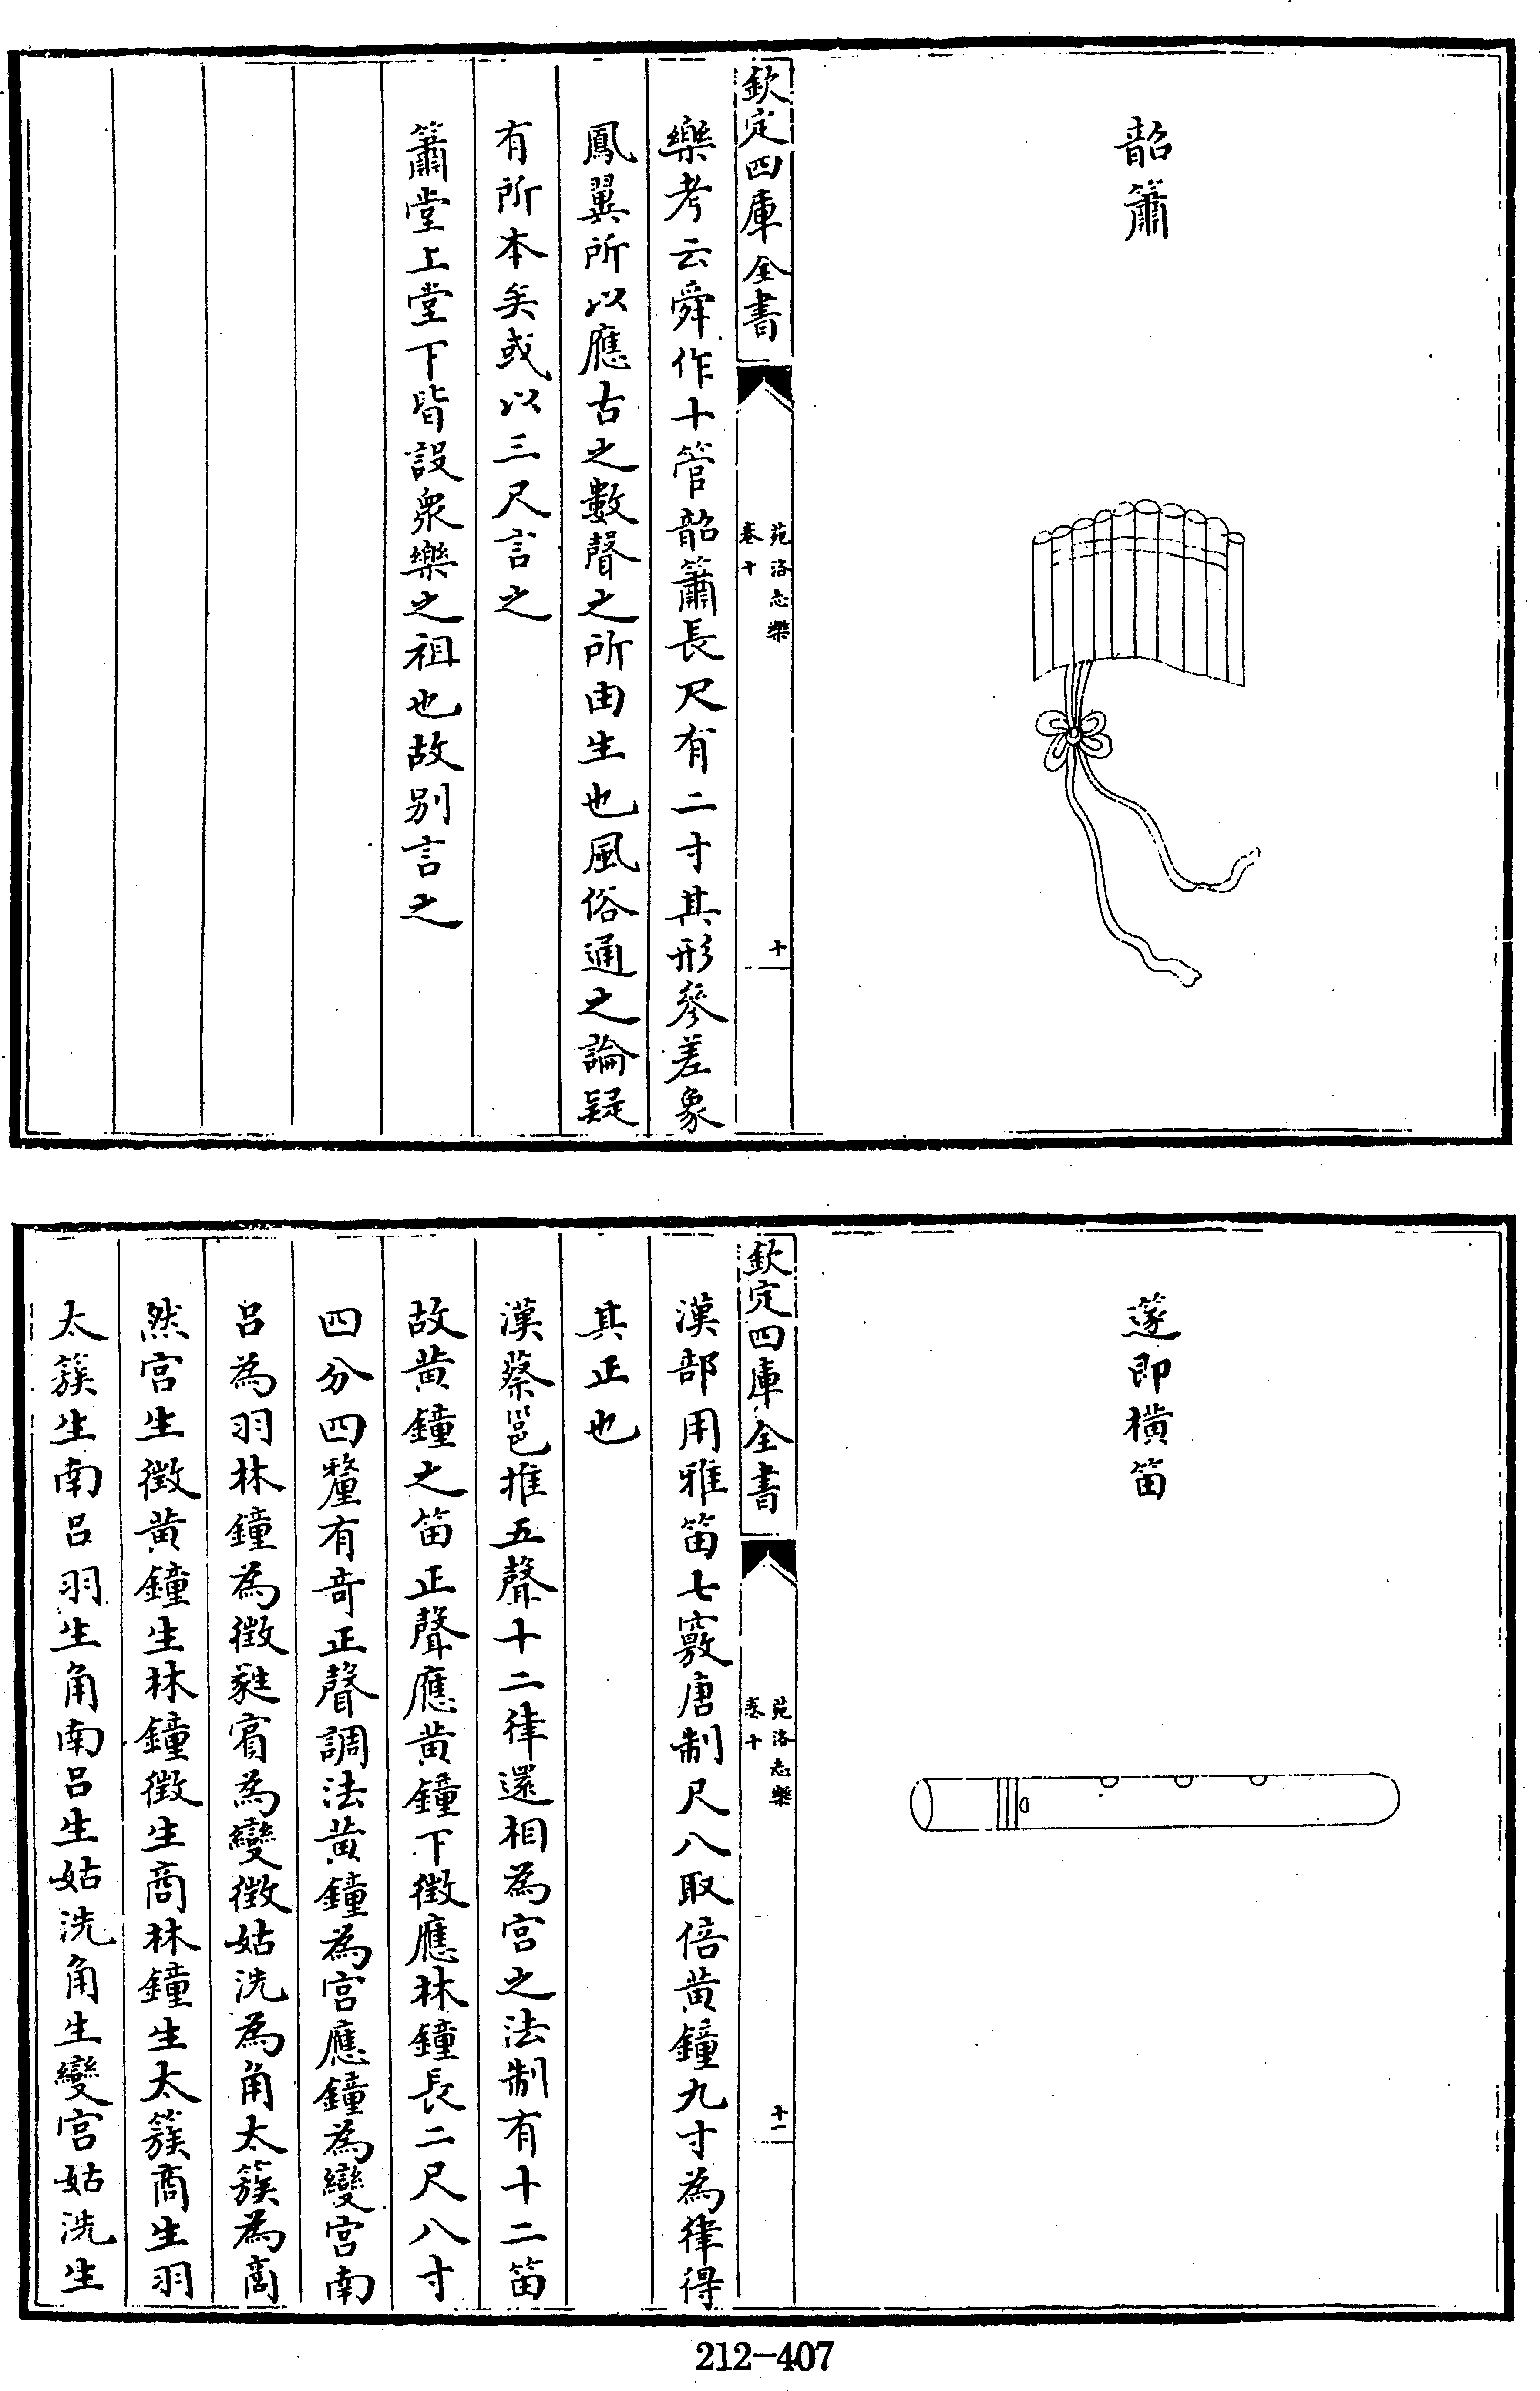 韶簫
欽定四庫全書
苑洛志樂
卷十
十
樂考云舜作十管韶簫長尺有二寸其形參差象
鳳翼所以應古之數聲之所由生也風俗通之論疑
有所本矣或以三尺言之
簫堂上堂下皆設衆樂之祖也故别言之
篴即橫笛
欽定四庫全書
苑洛志樂
卷十
十一
漢部用雅笛七竅唐制尺八取倍黄鐘九寸為律得
其正也
漢蔡邕推五聲十二律還相為宫之法制有十二笛
故黄鐘之笛正聲應黄鐘下徵應林鐘長二尺八寸
四分四釐有奇正聲調法黄鐘為宫應鐘為變宫南
吕為羽林鐘為徵蕤賓為變徵姑洗為角太簇為商
然宫生徵黄鐘生林鐘徵生商林鐘生太簇商生羽
太簇生南吕羽生角南吕生姑洗角生變宫姑洗生
212-407